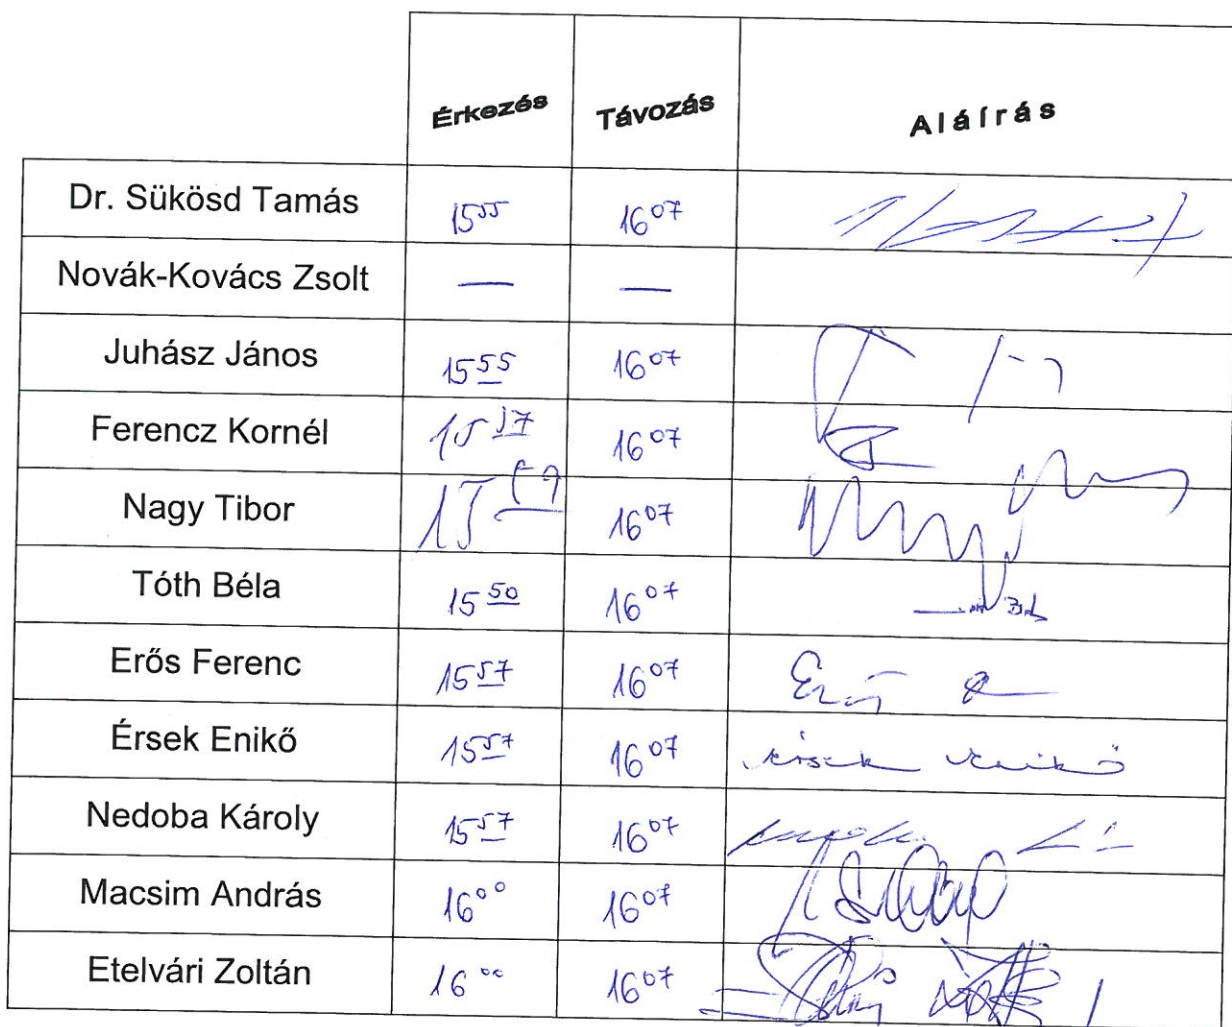 Érkezés Távozás Aláírás
Dr. Sükösd Tamás 15 55 16 07
Novák-Kovács Zsolt — —
Juhász János 15 55 16 07
Ferencz Kornél 15 57 16 07
Nagy Tibor 15 16 07
Tóth Béla 15 50 16 07
Erős Ferenc 15 57 16 07 Erős
Érsek Enikő 15 57 16 07 Érsek Enikő
Nedoba Károly 15 57 16 07
Macsim András 16 00 16 07
Etelvári Zoltán 16 00 16 07